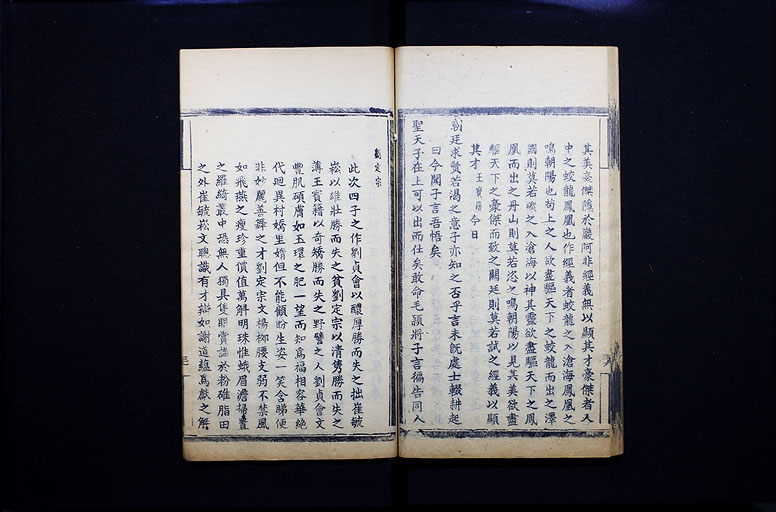 其美豪傑隱於巖阿非經義無以顯其才豪傑者人
中之蛟龍鳳凰也作經義者蛟龍之入滄海鳳凰之
鳴朝陽也茍上之人欲盡驅天下之蛟龍而出之澤
國則莫若徼之入滄海以神其靈欲盡驅天下之鳳
凰而出之丹山則莫若恣之鳴朝陽以見其美欲盡
驅天下之豪傑而致之闕廷則莫若試之經義以顯
其才 王寶籍 今日
朝廷求賢若渴之意子亦知之否乎言未既處士輟耕起
曰今聞子言吾悟矣
聖天子在上可以出而仕矣敢命毛穎將子言徧告同人
劉定宗
此次四子之作劉貞會以醲厚勝而失之拙崔毓
崧以雄壯勝而失之貧劉定宗以清雋勝而失之
薄王寶籍以奇矯勝而失之野譬之人劉貞會文
豐肌碩膚如玉環之肥一望而知為福相容華絶
代迥異村嬌里婧但不能顧盼生姿一笑含睇便
非妙麗善舞之才劉定宗文楊柳腰支弱不禁風
如飛燕之瘦珍重價值萬斛明珠惟蛾眉澹掃置
之羅綺叢中恐無人獨具隻眼賞識於粉碓脂田
之外崔毓崧文聰識有才辯如謝道蘊為獻之解
三